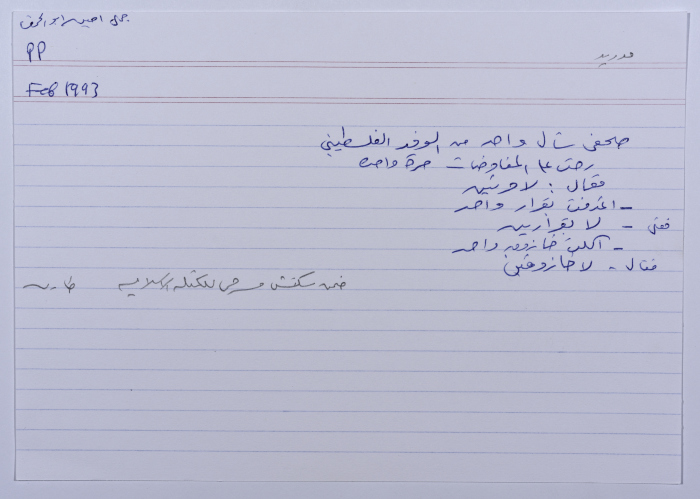 PP
مدريد
Feb 1993
صحفي سأل واحد من الوفد الفلسطيني
رحت ع المفاوضات مرة واحده
فقال : لا مرتين
- اعترفت بقرار واحد
فقال - لا بقرارين
- اكلت خازوق واحد
فقال - لا خازوقين
ضمن سكتش مسرحي للكتلة الاسلامية